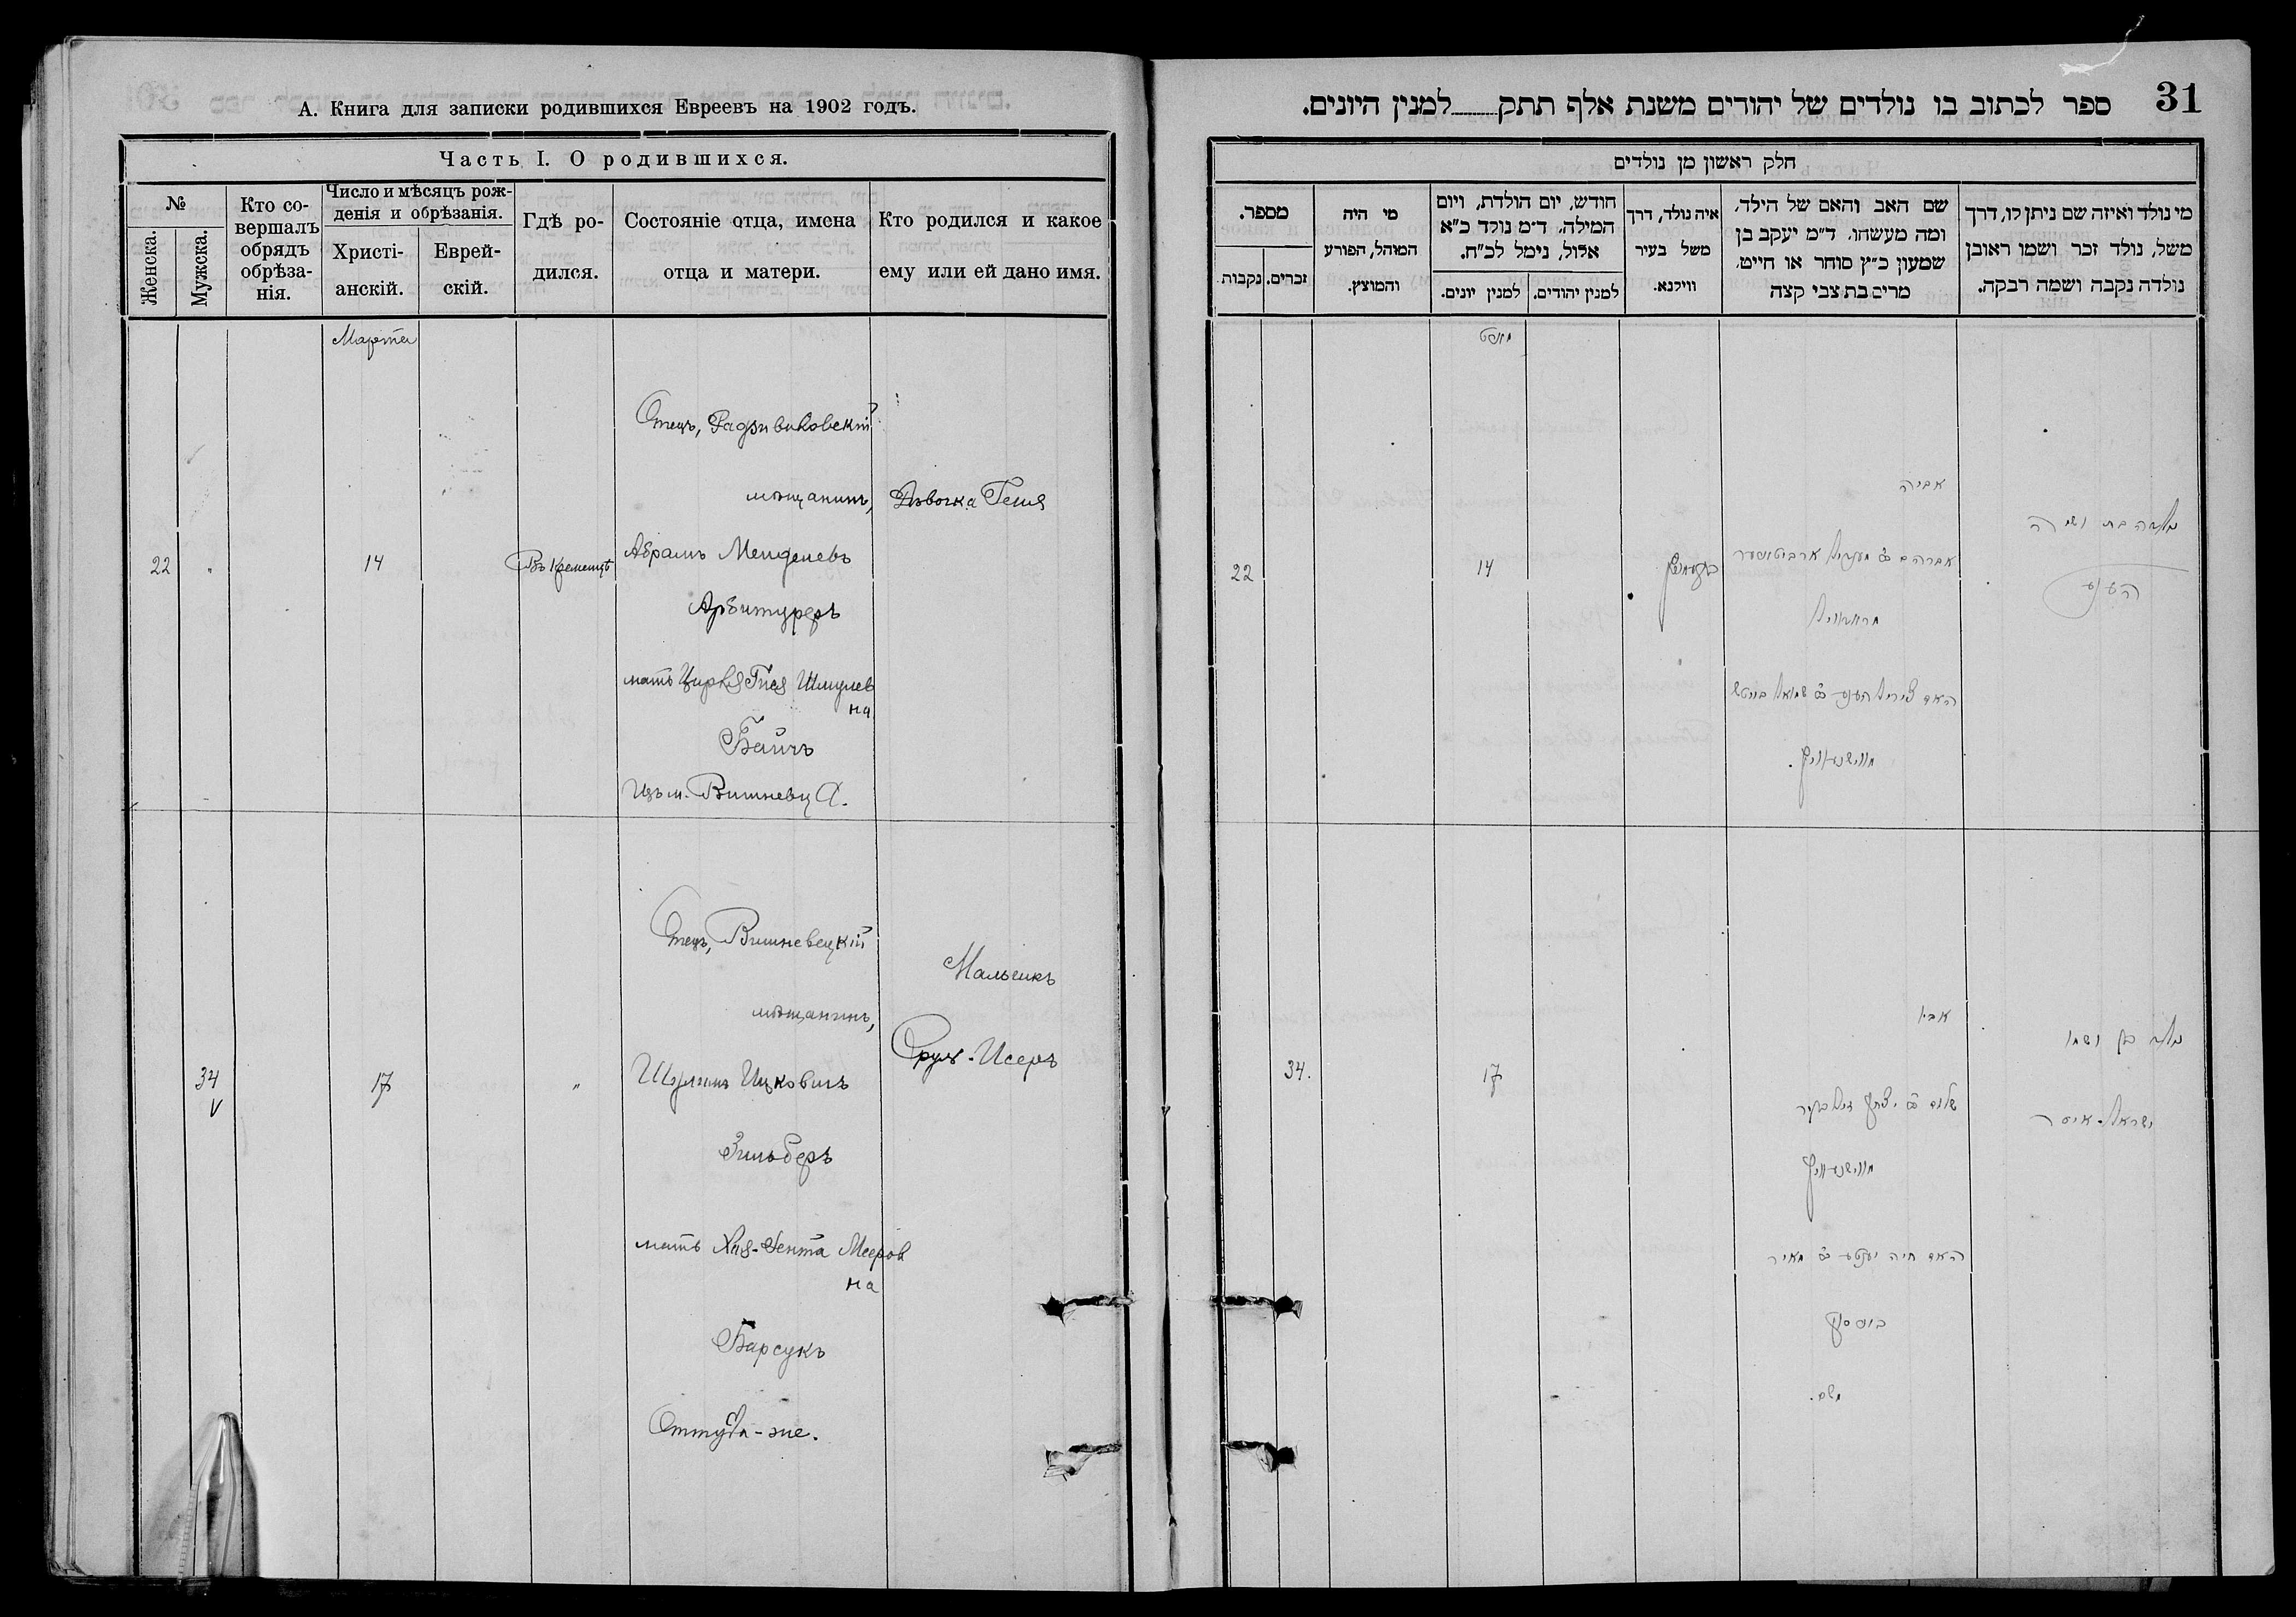 А. Книга для записки родившихся Евреевъ на 1902 годъ.
Часть I. О родившихся.
№
Женска.
Мужска.
Кто со-
вершалъ
обрядъ
обрѣза-
нія.
Число и мѣсяцъ рож-
денія и обрѣзанія.
Христі-
анскій.
Еврей-
скій.
Гдѣ ро-
дился.
Состояніе отца, имена
отца и матери.
Кто родился и какое
ему или ей дано имя.
Марта
22
"
14
Въ Кременцѣ
Отецъ, Радзивиловскій
мѣщанинъ,
Абрамъ
Арбитуреръ
мать Гися Шмулев
на
Байчъ
Изъ м. Вишневца.
Дѣвочка Геня
34
V
17
"
Отецъ, Вишневецкій
мѣщанинъ,
Ицковичъ
Зильберъ
мать Хая-Ента Мееров
на
Барсукъ
Оттуда-же.
Мальчикъ
Сруль-Исеръ
31
ספר לכתוב בו נולדים של יהודים משנת אלף תתק........למנין היונים.
חלק ראשון מן נולדים
מי נולד ואיזה שם ניתן לו, דרך
משל, נולד זכר ושמו ראובן
נולדה נקבה ושמה רבקה.
שם האב והאם של הילד,
ומה מעשהו. ד"מ יעקב בן
שמעון כ"ץ סוחר או חייט,
מרים בת צבי קצה
איה נולד, דרך
משל בעיר
ווילנא.
חודש, יום הולדת, ויום
המילה, ד"מ נולד כ"א
אלול, נימל לכ"ח.
למנין יהודים.
למנין יונים.
מי היה
המוהל, הפורע
והמוצץ.
מספר.
זכרים.
נקבות
מארט
22
14
אביה
אברהם
נולדה בת ושמה
הענע
34.
17
אביו
שלום יצחק זילבער
האם חיה יענטע מאיר
משם.
נולד בן ושמו
ישראל-איסר